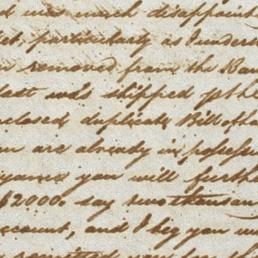 much disappoin
particularly as I unders
removed from the Ban
and shipped
enclosed duplicate Bill of La
are already in possess
you will furth
$2000. say two thousan
account, and I beg you w